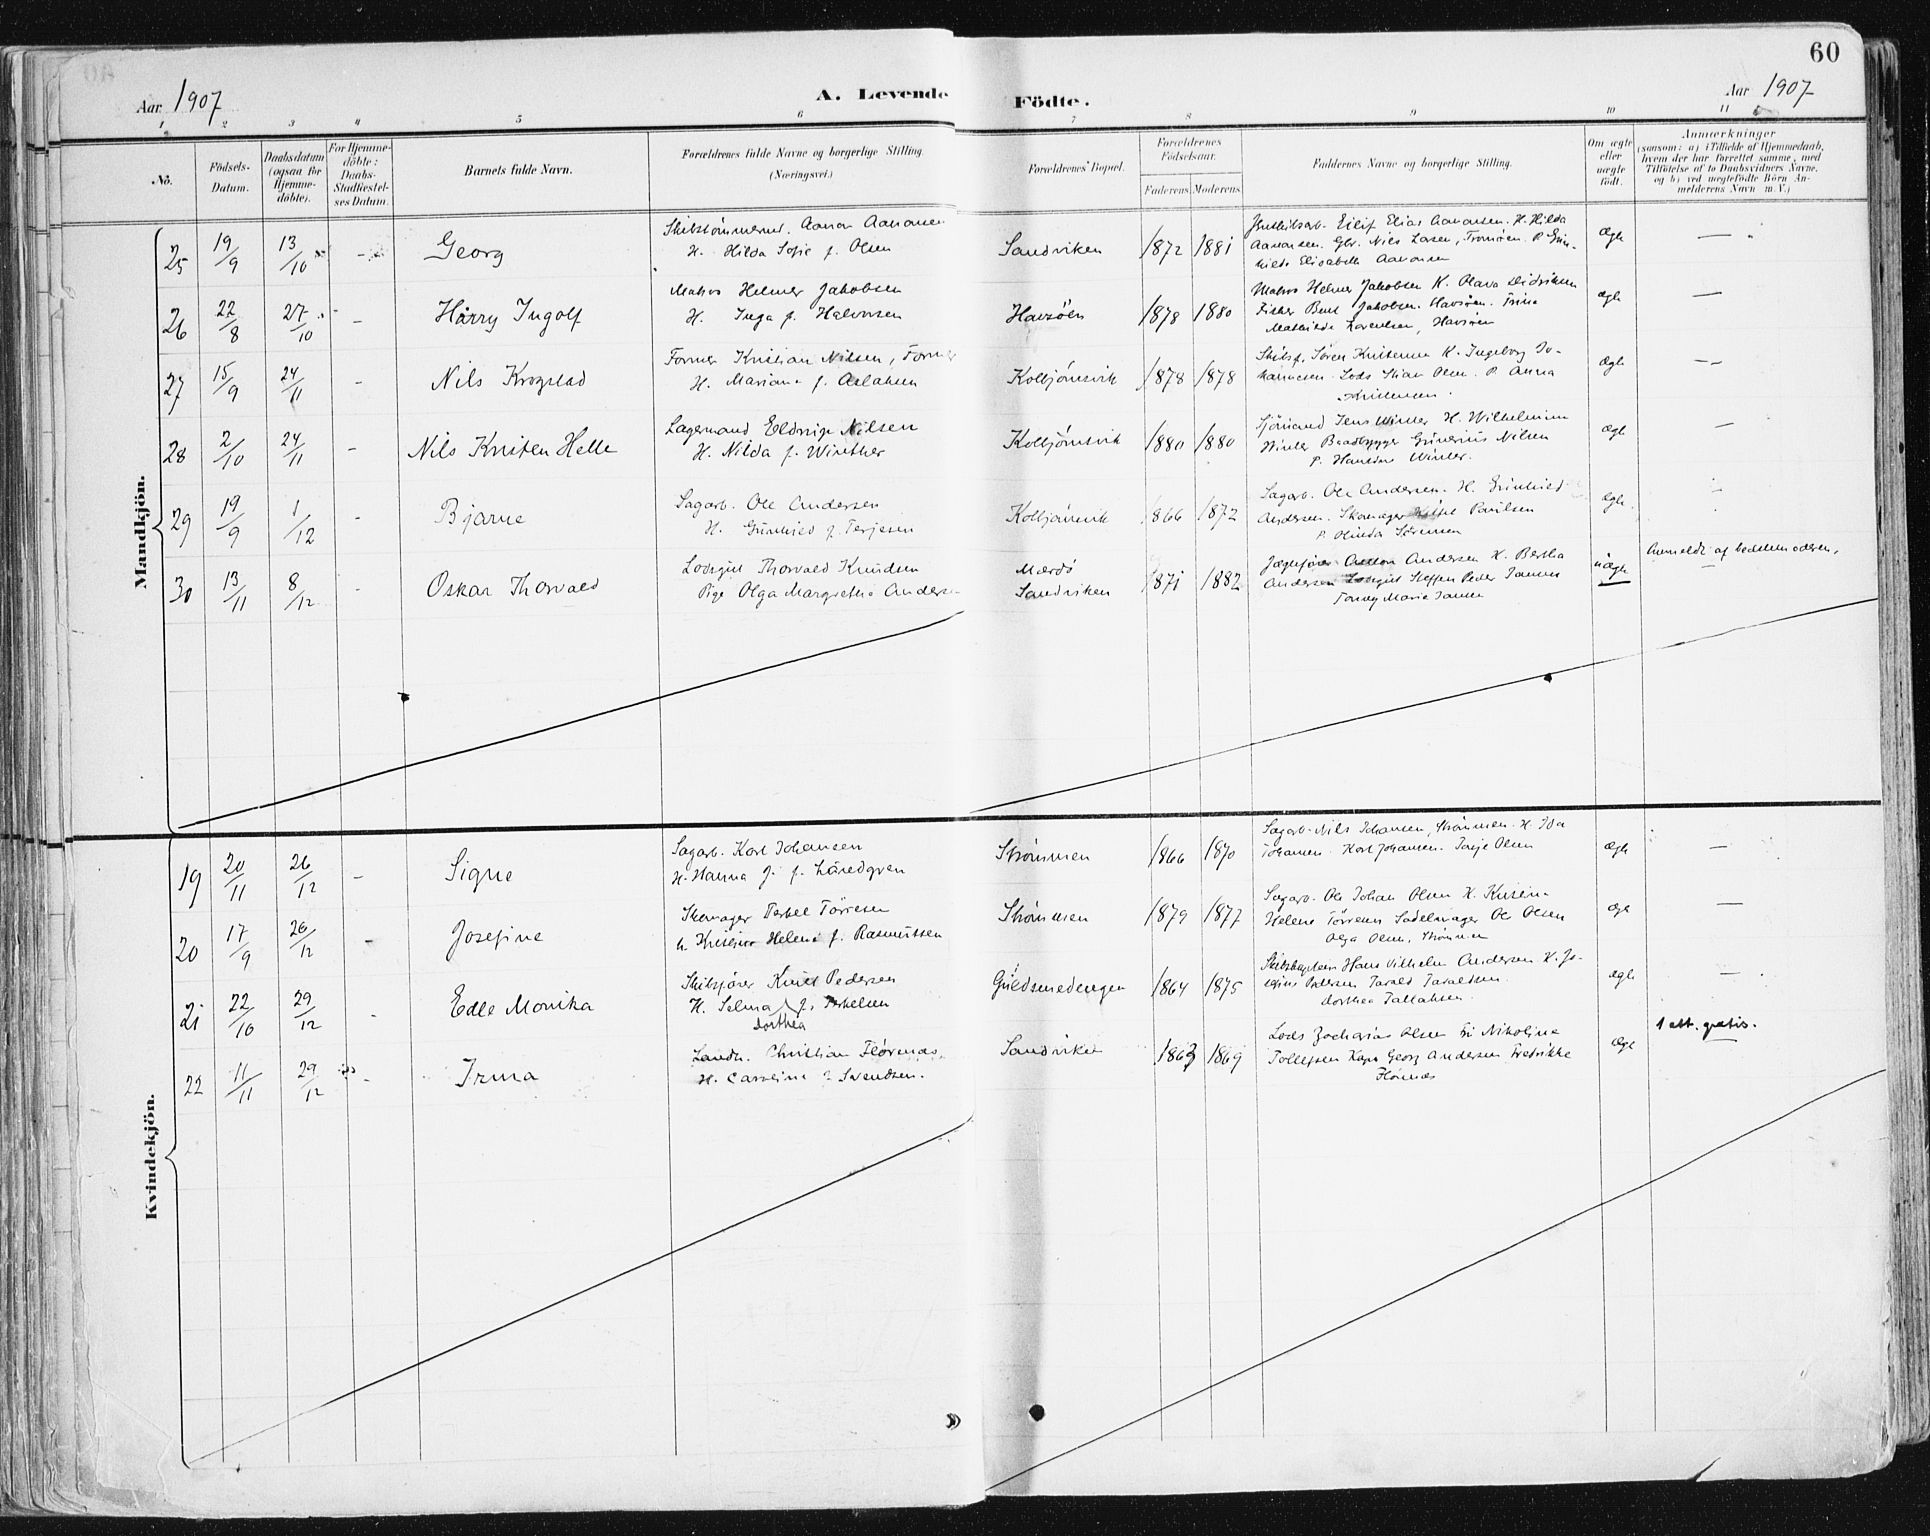 60
Aar 1907 A. Levende Födte. Aar 1907
1 2 3 4 5 6 7 8 9 10 11
No. Födsels-Datum. Daabsdatum (ogsaa for Hjemme-döbte). For Hjemme-döbte: Daabs-Stadfæstel-ses Datum. Barnets fulde Navn. Forældrenes fulde Navne og borgerlige Stilling. (Næringsvei.) Forældrenes Bopæl. Forældrenes Födselsaar. Faderens Moderens Faddernes Navne og borgerlige Stilling. Om ægte eller uægte födt. Anmærkninger (saasom: a) i Tilfælde af Hjemmedaab, hvem der har forrettet samme, med Tilföielse af to Daabsvidners Navne, og b) ved uægtefödte Börn An-melderens Navn m. V.)
Mandkjön.
25 19/9 13/10 - Georg
Aanon Aanonsen
H. Hilda Sofie f. Olsen
Sandviken 1872 1881
Eilif Elias Aanonsen. H. Hilda
Aanonsen. Nils Larsen, Tromöen. P.
Elisabeth Aanonsen
ægte —
26 22/8 27/10 - Harry Ingolf
Matros Helmer Jakobsen
H. Inga f. Halvorsen
Havsöen 1878 1880
Matros Helmer Jakobsen K. Olava Didriksen
Fisker Bent Jakobsen. Havsöen. Trine
Mathilde Lorentsen, Havsöen
ægte —
27 15/9 24/11 - Nils Krogstad
Former Kristian Nilsen, Former
H. Mariane f. Aslaksen
Kolbjörnsvik 1878 1878
Sören Kristensen K. Ingeborg Jo-
hannesen. Lods Olsen. P. Anna
Kristensen.
ægte —
28 2/10 24/11 - Nils Kristen Helle
Lagermand Nilsen
H. Nilda f. Winther
Kolbjörnsvik 1880 1880
Sjömand Jens Winter H. Wilhelmine
Winter Baadbygger Grunerius Nilsen
P. Winter.
ægte —
29 19/9 1/12 - Bjarne
Sagarb. Ole Andersen
H. Gunhild f. Terjesen
Kolbjörnsvik 1866 1872
Sagarb. Ole Andersen. H. Gunhild
Andersen. Skomager Paulsen
P. Olinda Sörensen
ægte
30 13/11 8/12 - Oskar Thorvald
Lodsgut Thorvald Knudsen
Pige Olga Margrethe Andersen
Mærdö
Sandviken 1871 1882
Andersen H. Bertha
Andersen Lodsgut Steffen Peder Jansen
Marie Jansen
uægte Anmeldt af bedstemoderen.
Kvindekjön.
19 20/11 26/12 - Signe
Sagarb. Karl Johansen
H. Hanna J. f.
Strömmen 1866 1870
Sagarb. Nils Johansen, Strömmen. H. Ida
Johansen. Karl Johansen. Olsen
ægte —
20 17/9 26/12 - Josefine
Skomager Terkel Törresen
H. Helene f. Rasmussen
Strömmen 1879 1877
Sagarb. Ole Johan Olsen H.
Helene Törresen Sadelmager Ole Olsen
Olga Olsen, Strömmen
ægte —
21 22/10 29/12 - Edle Monika
Skibsförer Knut Pedersen
H. Selma f. Terkelsen
Dorthea
Guldsmedengen 1864 1875
Hans Vilhelm Andersen H. Jo-
Pedersen Tarald Taraldsen
Dorthea Tallaksen.
ægte —
22 11/11 29/12 - Irma
Christian
H. Caroline f. Svendsen.
Sandviken 1863 1869
Lods Zacharias Olsen Nikoline
Tollefsen Georg Andersen Fredrikke
ægte 1 att. gratis.